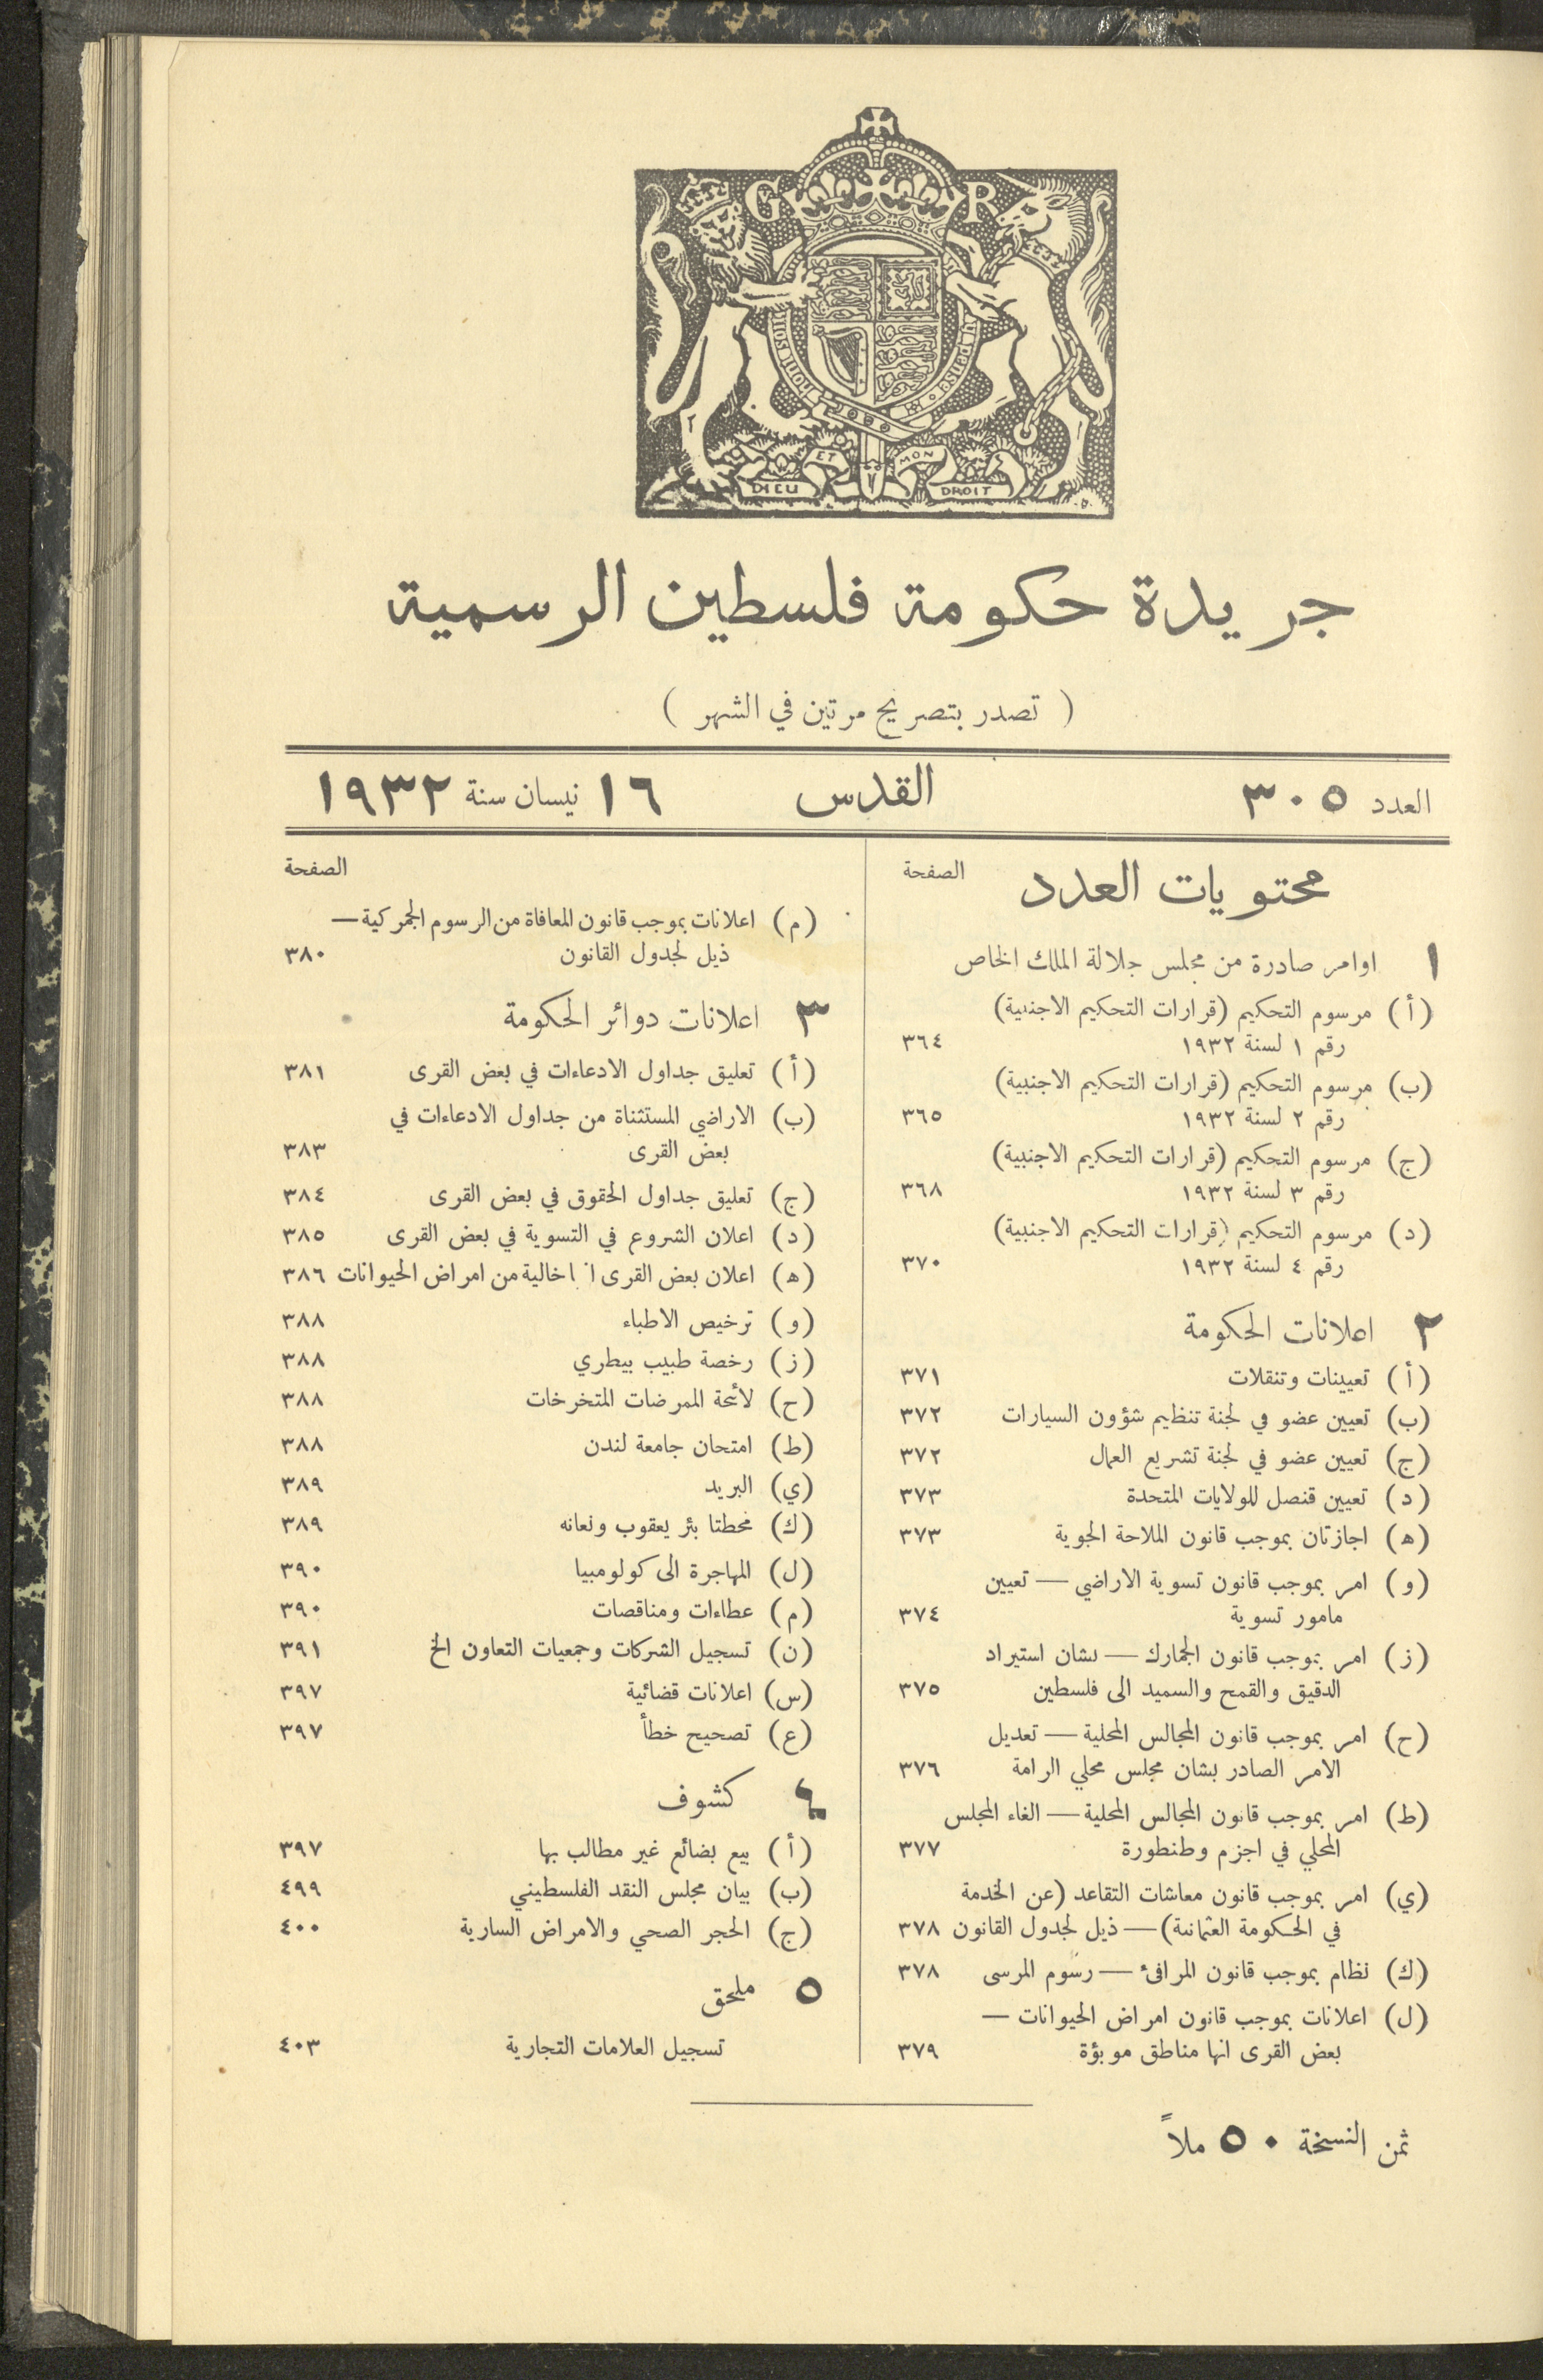 G R
HONI SOIT
DIEU ET MON DROIT
جريدة حكومة فلسطين الرسمية
( تصدر بتصريح مرتين في الشهر )
العدد ٣٠٥ القدس ١٦ نيسان سنة ١٩٣٢
محتويات العدد الصفحة
١ اوامر صادرة من مجلس جلالة الملك الخاص
(أ) مرسوم التحكيم (قرارات التحكيم الاجنبية)
رقم ١ لسنة ١٩٣٢ ٣٦٤
(ب) مرسوم التحكيم (قرارات التحكيم الاجنبية)
رقم ٢ لسنة ١٩٣٢ ٣٦٥
(ج) مرسوم التحكيم (قرارات التحكيم الاجنبية)
رقم ٣ لسنة ١٩٣٢ ٣٦٨
(د) مرسوم التحكيم (قرارات التحكيم الاجنبية)
رقم ٤ لسنة ١٩٣٢ ٣٧٠
٢ اعلانات الحكومة
(أ) تعيينات وتنقلات ٣٧١
(ب) تعيين عضو في لجنة تنظيم شؤون السيارات ٣٧٢
(ج) تعيين عضو في لجنة تشريع العمال ٣٧٢
(د) تعيين قنصل للولايات المتحدة ٣٧٣
(ه) اجازتان بموجب قانون الملاحة الجوية ٣٧٣
(و) امر بموجب قانون تسوية الاراضي — تعيين
مامور تسوية ٣٧٤
(ز) امر بموجب قانون الجمارك — بشان استيراد
الدقيق والقمح والسميد الى فلسطين ٣٧٥
(ح) امر بموجب قانون المجالس المحلية — تعديل
الامر الصادر بشان مجلس محلي الرامة ٣٧٦
(ط) امر بموجب قانون المجالس المحلية — الغاء المجلس
المحلي في اجزم وطنطورة ٣٧٧
(ي) امر بموجب قانون معاشات التقاعد (عن الخدمة
في الحكومة العثمانية) — ذيل لجدول القانون ٣٧٨
(ك) نظام بموجب قانون المرافئ — رسوم المرسى ٣٧٨
(ل) اعلانات بموجب قانون امراض الحيوانات —
بعض القرى انها مناطق موبؤة ٣٧٩
الصفحة
(م) اعلانات بموجب قانون المعافاة من الرسوم الجمركية —
ذيل لجدول القانون ٣٨٠
٣ اعلانات دوائر الحكومة
(أ) تعليق جداول الادعاءات في بعض القرى ٣٨١
(ب) الاراضي المستثناة من جداول الادعاءات في
بعض القرى ٣٨٣
(ج) تعليق جداول الحقوق في بعض القرى ٣٨٤
(د) اعلان الشروع في التسوية في بعض القرى ٣٨٥
(ه) اعلان بعض القرى خالية من امراض الحيوانات ٣٨٦
(و) ترخيص الاطباء ٣٨٨
(ز) رخصة طبيب بيطري ٣٨٨
(ح) لائحة الممرضات المتخرخات ٣٨٨
(ط) امتحان جامعة لندن ٣٨٨
(ي) البريد ٣٨٩
(ك) محطتا بئر يعقوب ونعانه ٣٨٩
(ل) المهاجرة الى كولومبيا ٣٩٠
(م) عطاءات ومناقصات ٣٩٠
(ن) تسجيل الشركات وجمعيات التعاون الخ ٣٩١
(س) اعلانات قضائية ٣٩٧
(ع) تصحيح خطأ ٣٩٧
٤ كشوف
(أ) بيع بضائع غير مطالب بها ٣٩٧
(ب) بيان مجلس النقد الفلسطيني ٤٩٩
(ج) الحجر الصحي والامراض السارية ٤٠٠
٥ ملحق
تسجيل العلامات التجارية ٤٠٣
ثمن النسخة ٥٠ ملاً